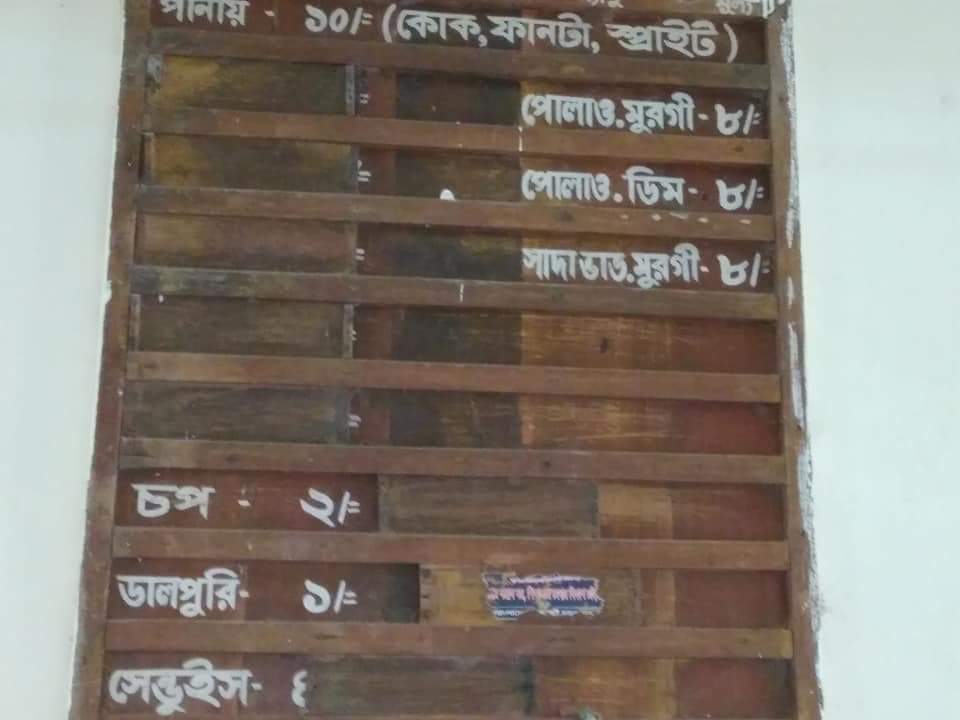 পানীয় - ১০/= (কোক, ফানটা, স্প্রাইট)
পোলাও.মুরগী - ৮/=
পোলাও. ডিম - ৮/=
সাদা ভাত.মুরগী - ৮/=
চপ - ২/=
ডালপুরি - ১/=
সেন্ডুইস -